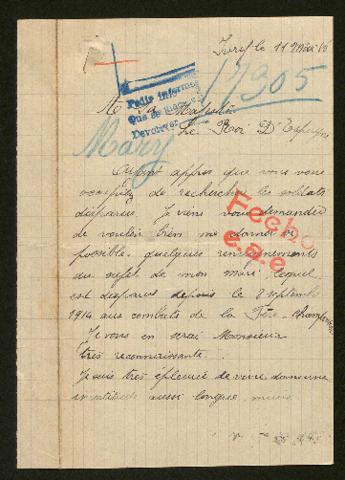 le 11 Mai 15
Pedir informes
Que se
Devolver
17305
A Sa Majesté
Le Roi D'Espagne
Mary
Ayant appris que vous vous
occupiez de rechercher les soldats
disparus. Je viens vous demander
de vouloir bien me donner si
possible. quelques renseignements
au sujet de mon mari lequel
est disparus depuis le 8 septembre
1914 aux combats de la Fère-champenoise
Fecho
Je vous en serai Monsieur
très reconnaissante.
Je suis très de vivre dans une
incertitude aussi longue.